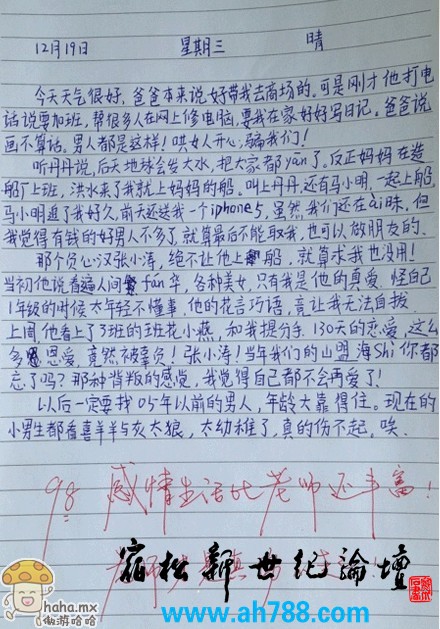 12月19日 星期三 晴
今天天气很好,爸爸本来说好带我去商场的。可是刚才他打电
话说要加班,帮很多人在网上修电脑,要我在家好好写日记。爸爸说
画不算话,男人都是这样!哄女人开心,骗我们!
听丹丹说,后天地球会发大水,把大家都yān了。反正妈妈在造
船厂上班,洪水来了我就上妈妈的船。叫上丹丹,还有马小明,一起上船。
马小明追了我好久,前天还送我一个iphone5,虽然我们还在ài昧,但
我觉得有钱的好男人不多了,就算最后不能取我,也可以做朋友的。
那个负心汉张小涛,绝不让他上船,就算求我也没用!
当初他说看遍人间fán华,各种美女,只有我是他的真爱。怪自己
1年级的时候太年轻不懂事,他的花言巧语,竟让我无法自拔。
上周,他看上了3班的班花小燕,和我提分手,130天的恋爱,这么
多恩爱,竟然被辜负!张小涛!当年我们的山盟海Shi你都
忘了吗?那种背叛的感觉,我觉得自己都不会再爱了!
以后一定要找05年以前的男人,年龄大靠得住。现在的
小男生都看喜羊羊与灰太狼,太幼稚了,真的伤不起,唉。
98 感情生活比老师还丰富!
宿松新世纪论坛
haha.mx
傲游哈哈
www.ah788.com